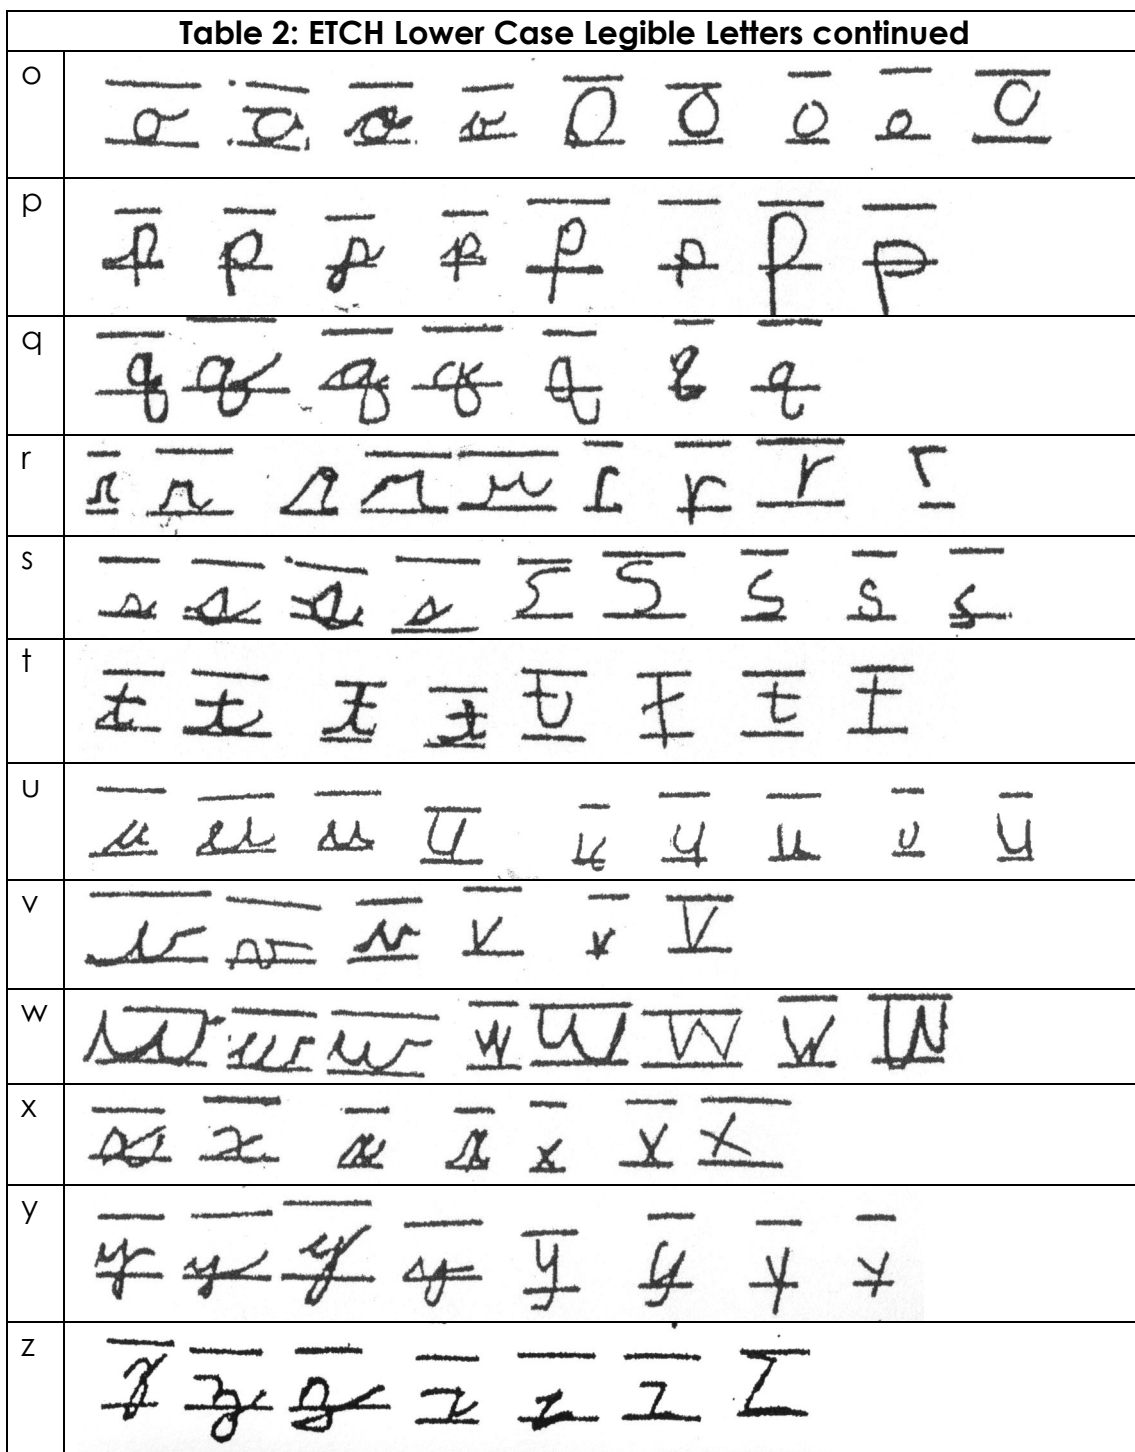 Table 2: ETCH Lower Case Legible Letters continued
o o o o o o o o o o
p p p p p p p p p
q q q q q q q q
r r r r r r r r r r
s s s s s s s s s s
t t t t t t t t t
u u u u u u u u u u
v v v v v v v
w w w w w w w w w
x x x x x x x x
y y y y y y y y y
z z z z z z z z